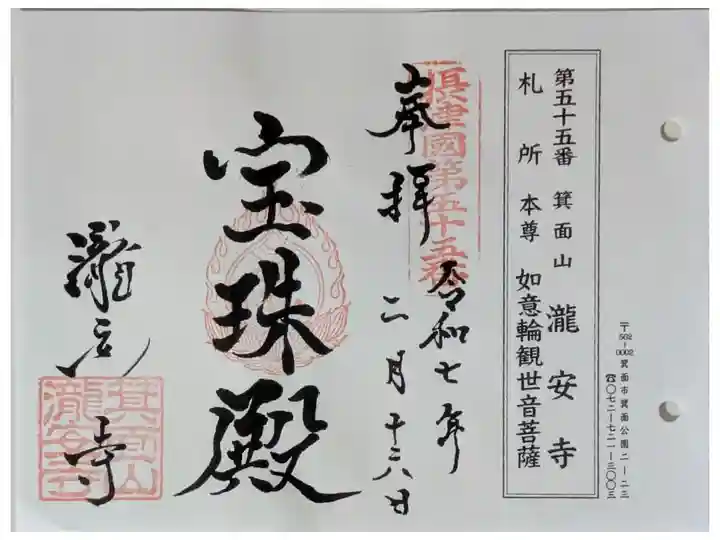 第五十五番 箕面山 瀧安寺
札所本尊 如意輪観世音菩薩
〒562-0002 箕面市箕面公園二-二三
☎〇七二-七二一-三〇〇三
摂津國第五十五番
奉拝
令和七年
二月十六日
宝珠殿
瀧安寺
箕面山
瀧安寺